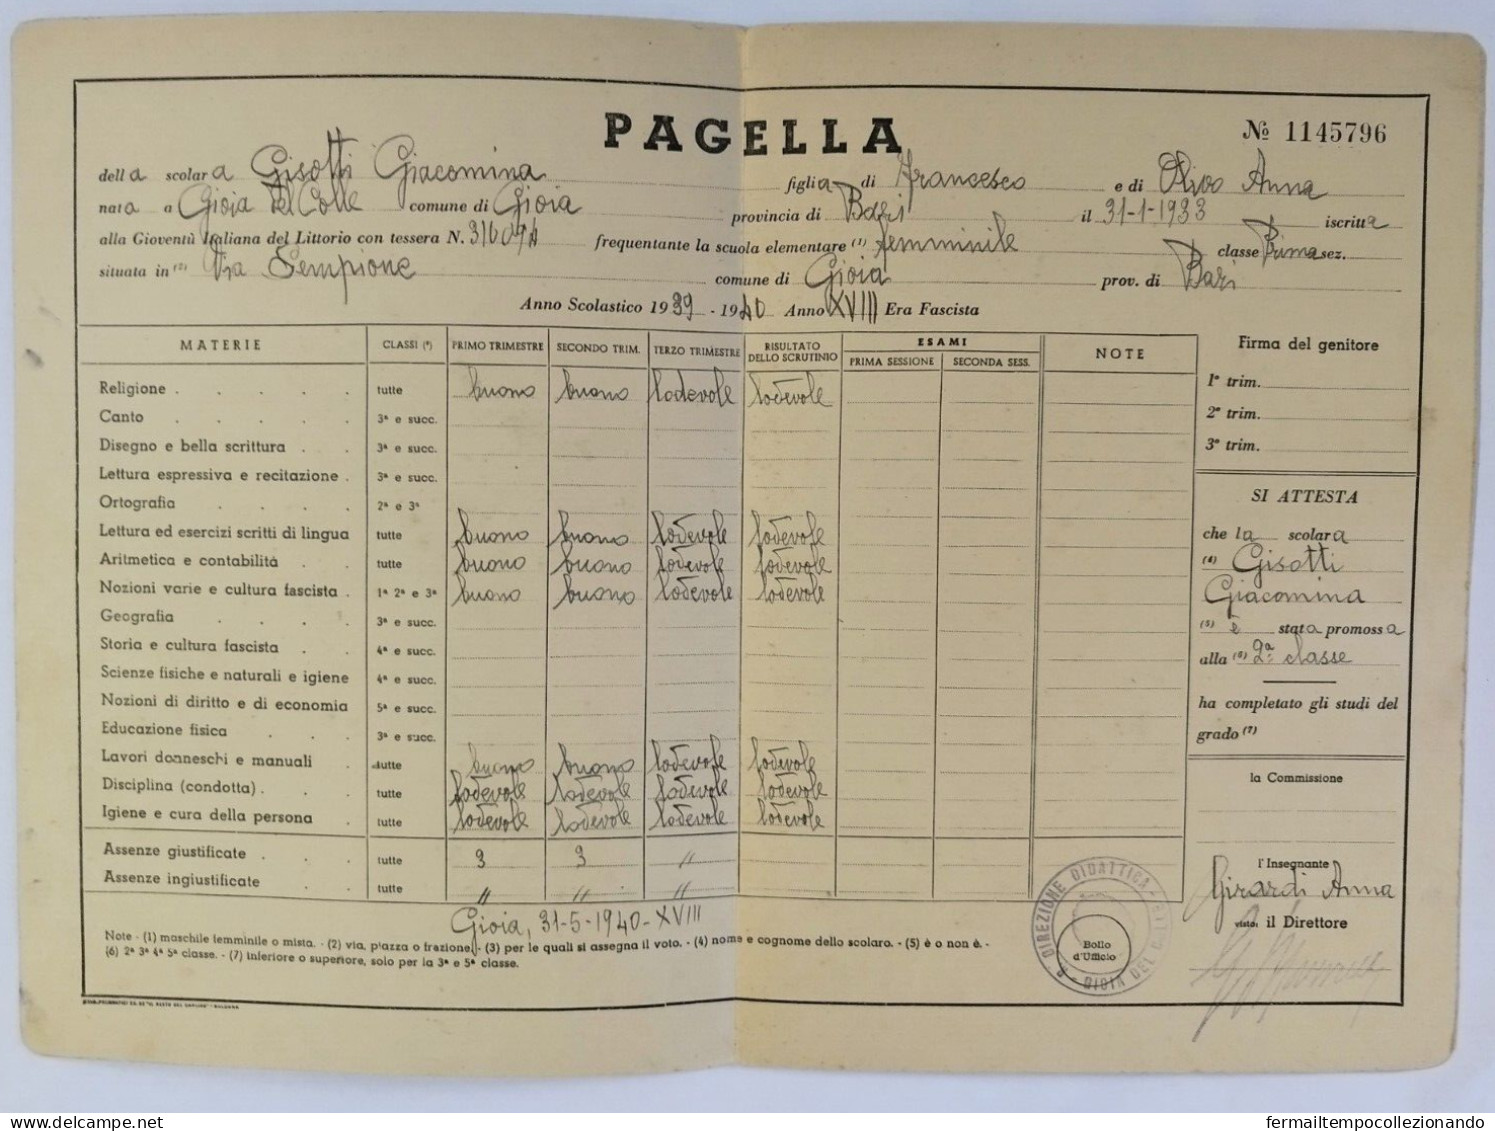 PAGELLA
№ 1145796
della scolara Gisotti Giacomina figlia di Francesco e di Olivo Anna
nata a Gioia del Colle comune di Gioia provincia di Bari il 31-1-1933 iscritta
alla Gioventù Italiana del Littorio con tessera N. frequentante la scuola elementare (1) femminile classe Prima sez.
situata in (2) Via Sempione comune di Gioia prov. di Bari
Anno Scolastico 1939 - 1940 Anno XVIII Era Fascista
MATERIE CLASSI (3) PRIMO TRIMESTRE SECONDO TRIM. TERZO TRIMESTRE RISULTATO DELLO SCRUTINIO ESAMI PRIMA SESSIONE SECONDA SESS. NOTE
Religione . . . . . tutte buono buono lodevole lodevole
Canto . . . . . 3ª e succ.
Disegno e bella scrittura . . 3ª e succ.
Lettura espressiva e recitazione . 3ª e succ.
Ortografia . . . . 2ª e 3ª
Lettura ed esercizi scritti di lingua tutte buono buono lodevole lodevole
Aritmetica e contabilità . . tutte buono buono lodevole lodevole
Nozioni varie e cultura fascista . 1ª 2ª e 3ª buono buono lodevole lodevole
Geografia . . . . 3ª e succ.
Storia e cultura fascista . . 4ª e succ.
Scienze fisiche e naturali e igiene 4ª e succ.
Nozioni di diritto e di economia 5ª e succ.
Educazione fisica . . . 3ª e succ.
Lavori donneschi e manuali . tutte buono buono lodevole lodevole
Disciplina (condotta) . . . tutte lodevole lodevole lodevole lodevole
Igiene e cura della persona . tutte lodevole lodevole lodevole lodevole
Assenze giustificate . . . tutte 3 3 "
Assenze ingiustificate . . tutte " " "
Gioia, 31-5-1940-XVIII
Note - (1) maschile femminile o mista. - (2) via, piazza o frazione. - (3) per le quali si assegna il voto. - (4) nome e cognome dello scolaro. - (5) è o non è. -
(6) 2ª 3ª 4ª 5ª classe. - (7) inferiore o superiore, solo per la 3ª e 5ª classe.
Firma del genitore
1° trim.
2° trim.
3° trim.
SI ATTESTA
che la scolara
(4) Gisotti
Giacomina
(5) è stata promossa
alla (6) 2ª classe
ha completato gli studi del
grado (7)
la Commissione
l'Insegnante
Girardi Anna
visto: il Direttore
DIREZIONE DIDATTICA
GIOIA DEL
Bollo
d'Ufficio
fermailtempocollezionando